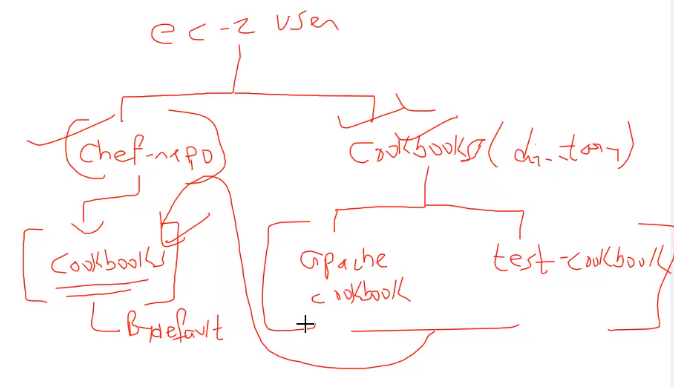 ec-2 user
Chef-repo
Cookbooks (directory)
Cookbooks
By default
apache
cookbook
test-cookbook